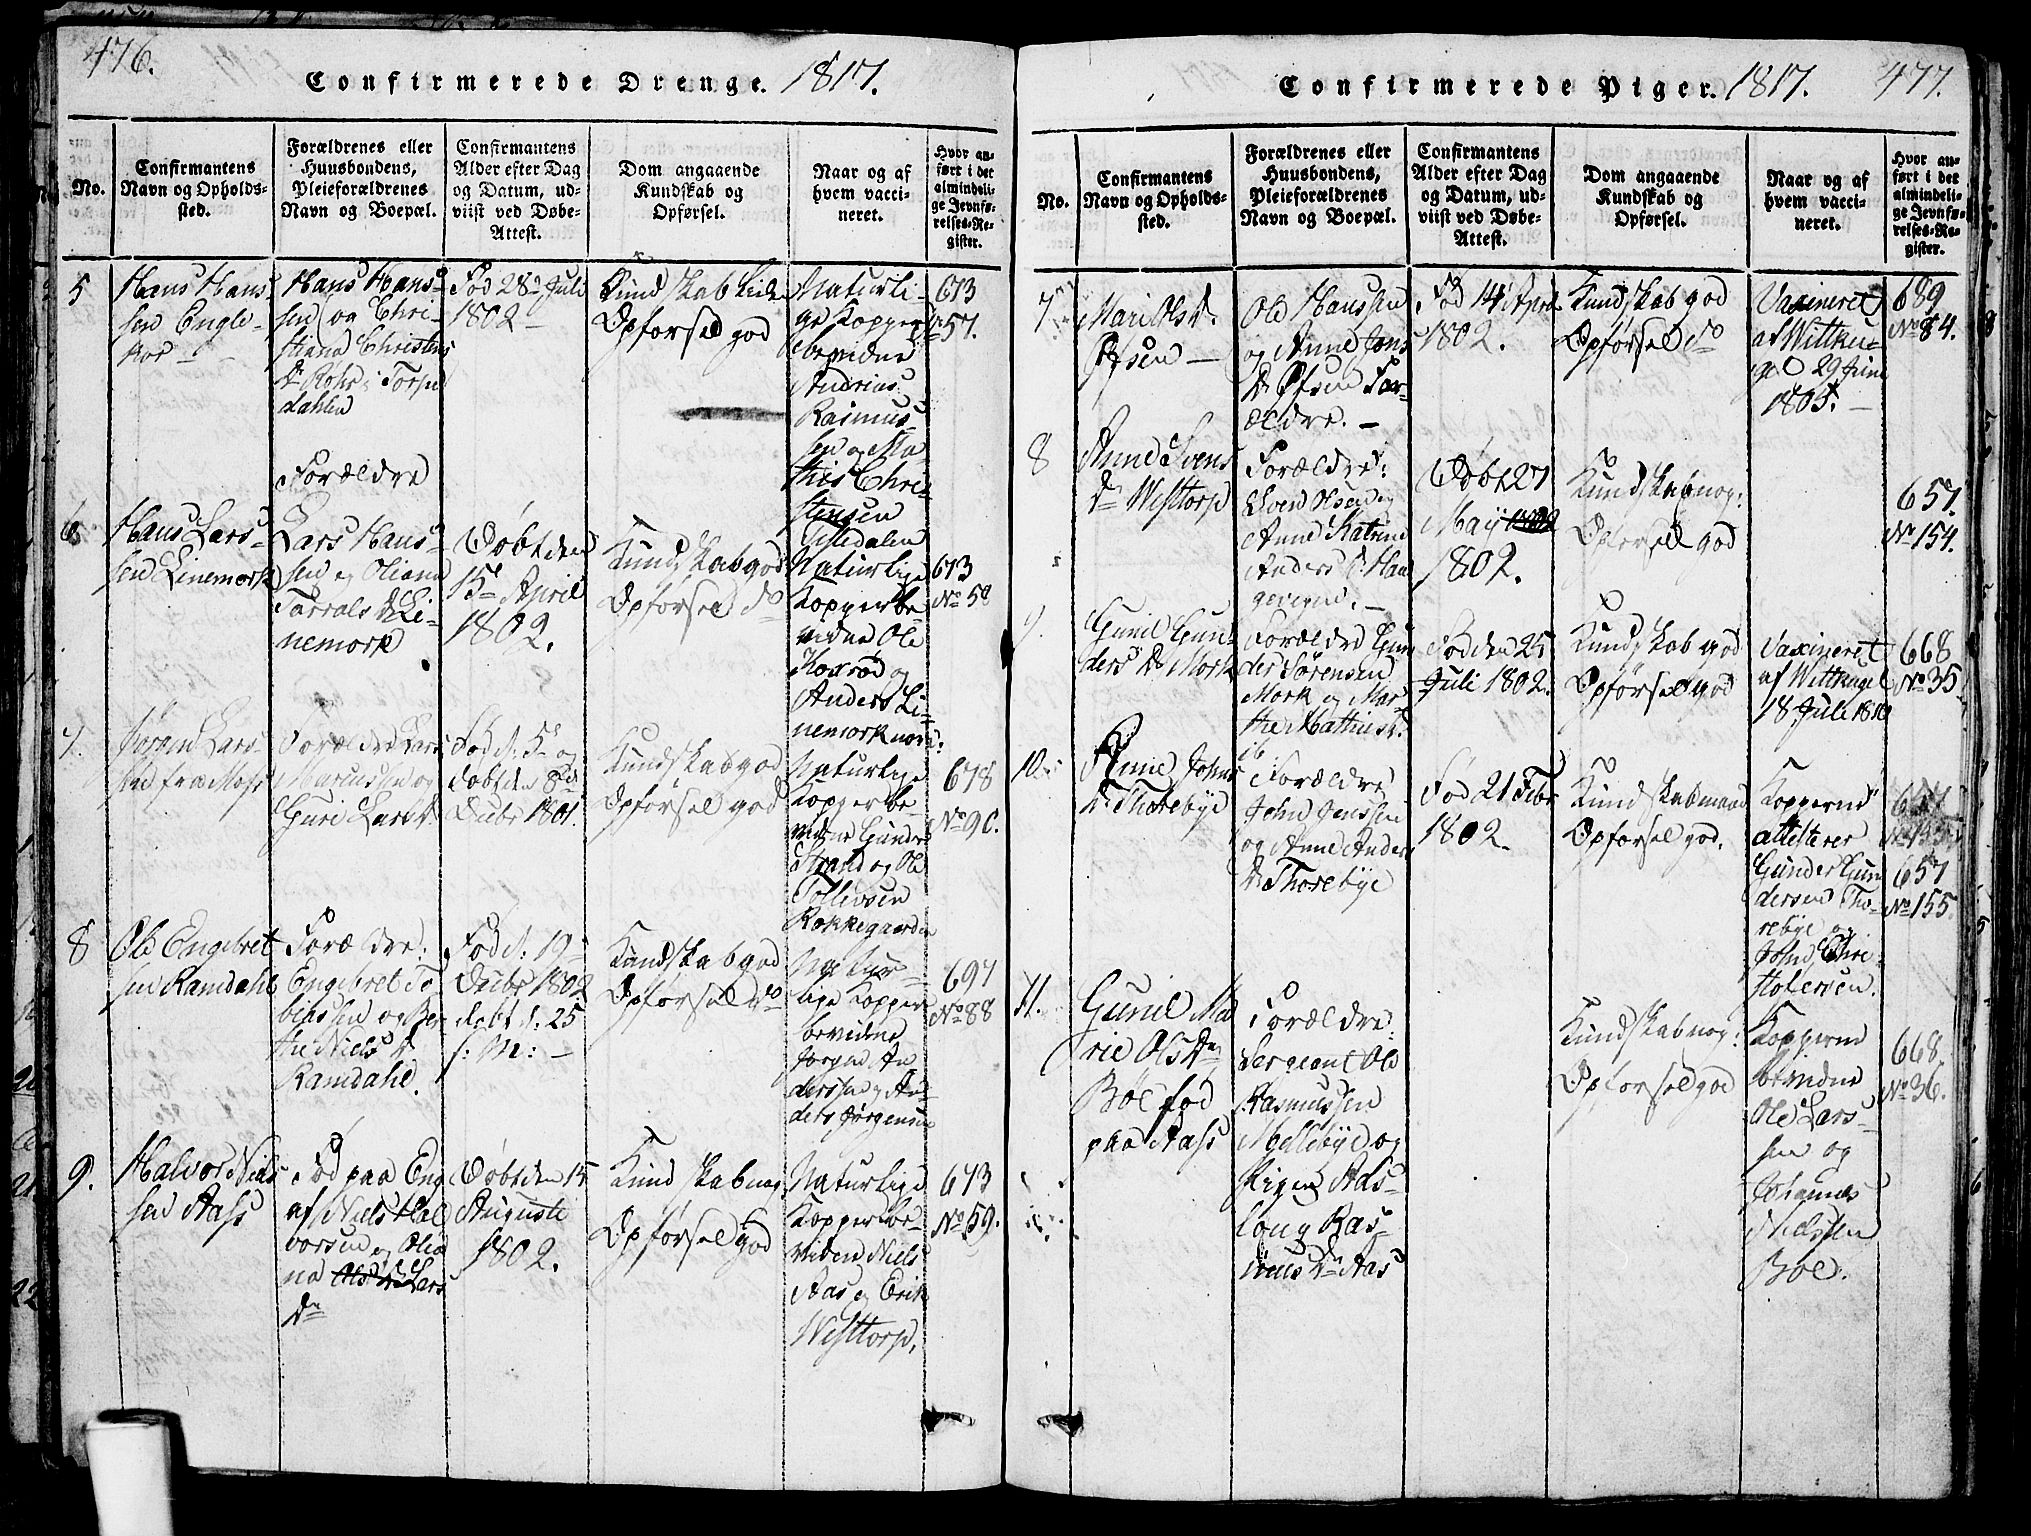 476.
Confirmerede Drenge. 1817.
No.
Confirmantens
Navn og Opholds-
sted.
Forældrenes eller
Huusbondens,
Pleieforældrenes
Navn og Boepæl.
Confirmantens
Alder efter Dag
og Datum, ud-
viist ved Døbe-
Attest.
Dom angaaende
Kundskab og
Opførsel.
Naar og af
hvem vacci-
neret.
Hvor an-
ført i det
almindeli-
ge Jevnfø-
relses-Re-
gister.
5
Hans Hans-
sen Engle-
kor
Hans Hans-
sen og Chri-
stiana Christens
Dr
Torpe
dahlen
Forældre
Fød 28de Juli
1802
Kundskab
Opførsel god
Naturli-
ge Kopper
bevidne
Andrius
Rasmus-
sen og Ma
this Chri-
stensen
Lilledalen
673
57.
6
Hans Lars-
sen Linemork
Lars Hans-
sen og Oliana
Dr Li-
nemork
Døbt den
15de April
1802.
Kundskab god
Opførsel do
Naturlige
Kopper be
vidne Ole
og
Anders Li-
nemork
673
No 58
7.
Jørgen Lars-
sen fra Moss
Forældre Lars
Marcussen og
Guri Lars Dr.
Fød d. 5te og
døbt den 8de
Decbr 1801.
Kundskab god
Opførsel god
Naturlige
Kopper be
vidne Gunder
Strand og Ole
Tollevsen
Rokkegaarden
678
No 90.
8
Ole Engebret
sen Ramdahl
Forældre:
Engebret To
biassen og Ber-
the Niels Dr
Ramdahl.
Fød d: 19
Decbr 1802
døbt d: 25
s: M:
Kundskab god
Opførsel do
Natur-
lige Kopper
bevidne
Jørgen An
derssen og An-
ders Jørgensen
697
No 88
9.
Halvor Niels
sen Aass
Fød paa Eng
af Niels Hal
vorsen og Olia
na Lars
Dr
Døbt den 15
Augusti
1802.
Kundskab nog
Opførsel god
Naturlige
Kopper be-
viden Niels
Aas og Erik
Westtorp.
673
No 59.
477.
Confirmerede Piger. 1817.
No.
Confirmantens
Navn og Opholds-
sted.
Forældrenes eller
Huusbondens,
Pleieforældrenes
Navn og Boepæl.
Confirmantens
Alder efter Dag
og Datum, ud-
viist ved Døbe-
Attest.
Dom angaaende
Kundskab og
Opførsel.
Naar og af
hvem vacci-
neret.
Hvor an-
ført i det
almindeli-
ge Jevnfø-
relses-Re-
gister.
7
Mari Ols Dr.
Øfsen
Ole Hanssen
og Anne Jons
Dr Øfsen For-
ældre.
Fød 14 April
1802.
Kundskab god
Opførsel do
Vaxineret
af Wittku-
gel 29 Juni
1805.
689
No 84.
8
Anne Svens
Dr Westtorp
Forældre:
Sven Olsen og
Anne Katrine
Anders Dr Hau
gevejen.
Døbt 27
May
1802.
Kundskab nog:
Opførsel god
657.
No 154.
9.
Gunil Gun-
ders Dr Mork
Forældre Gun
der Sørensen
Mork og Mar-
the Mathias Dr.
ib
Fød den 25
Juli 1802.
Kundskab god
Opførsel god
Vaxineret
af Wittkugel
18 Juli 1810
668
No 35
10
Anne Johns
Dr Thorebye
Forældre
John Jenssen
og Anne Anders
Dr Thorebye
Fød 21 Febr
1802.
Kundskab maad
Opførsel god.
Kopperne
attesterer
Gunder Gun
dersen Tho-
rebye og
John Chri-
stofersen.
657
No 155
657
No 155
11.
Gunil Ma
rie Ols Dr
Böe fød
paa Aass
Forældre:
Sergeant Ole
Rasmussen
Mellebye og
Pigen Aas-
loug Ras-
mus Dr Aas
Kundskab nog:
Opførsel god
Kopperne
bevidne
Ole Lars-
sen og
Johannes
Nielssen
Böe.
668.
No 36.